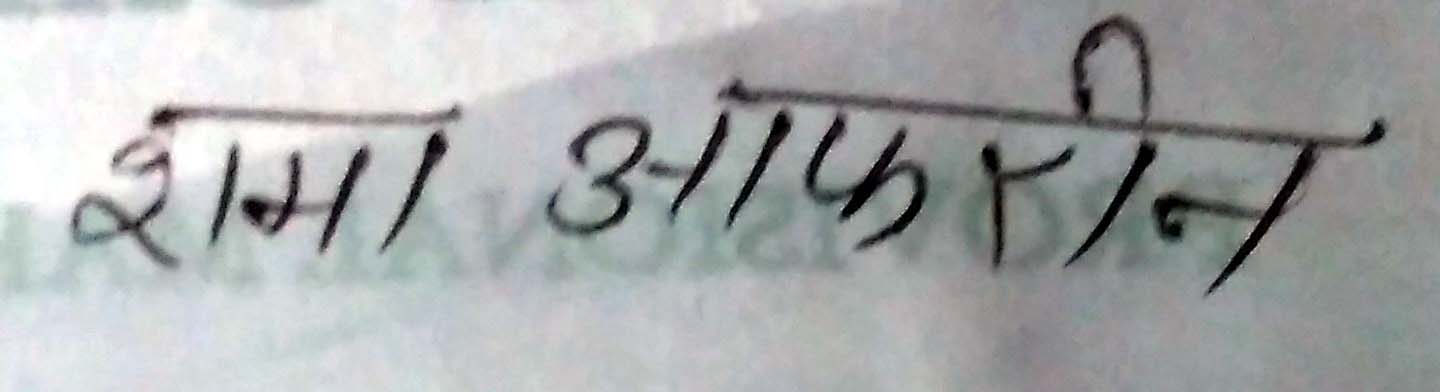 शमा आफरीन